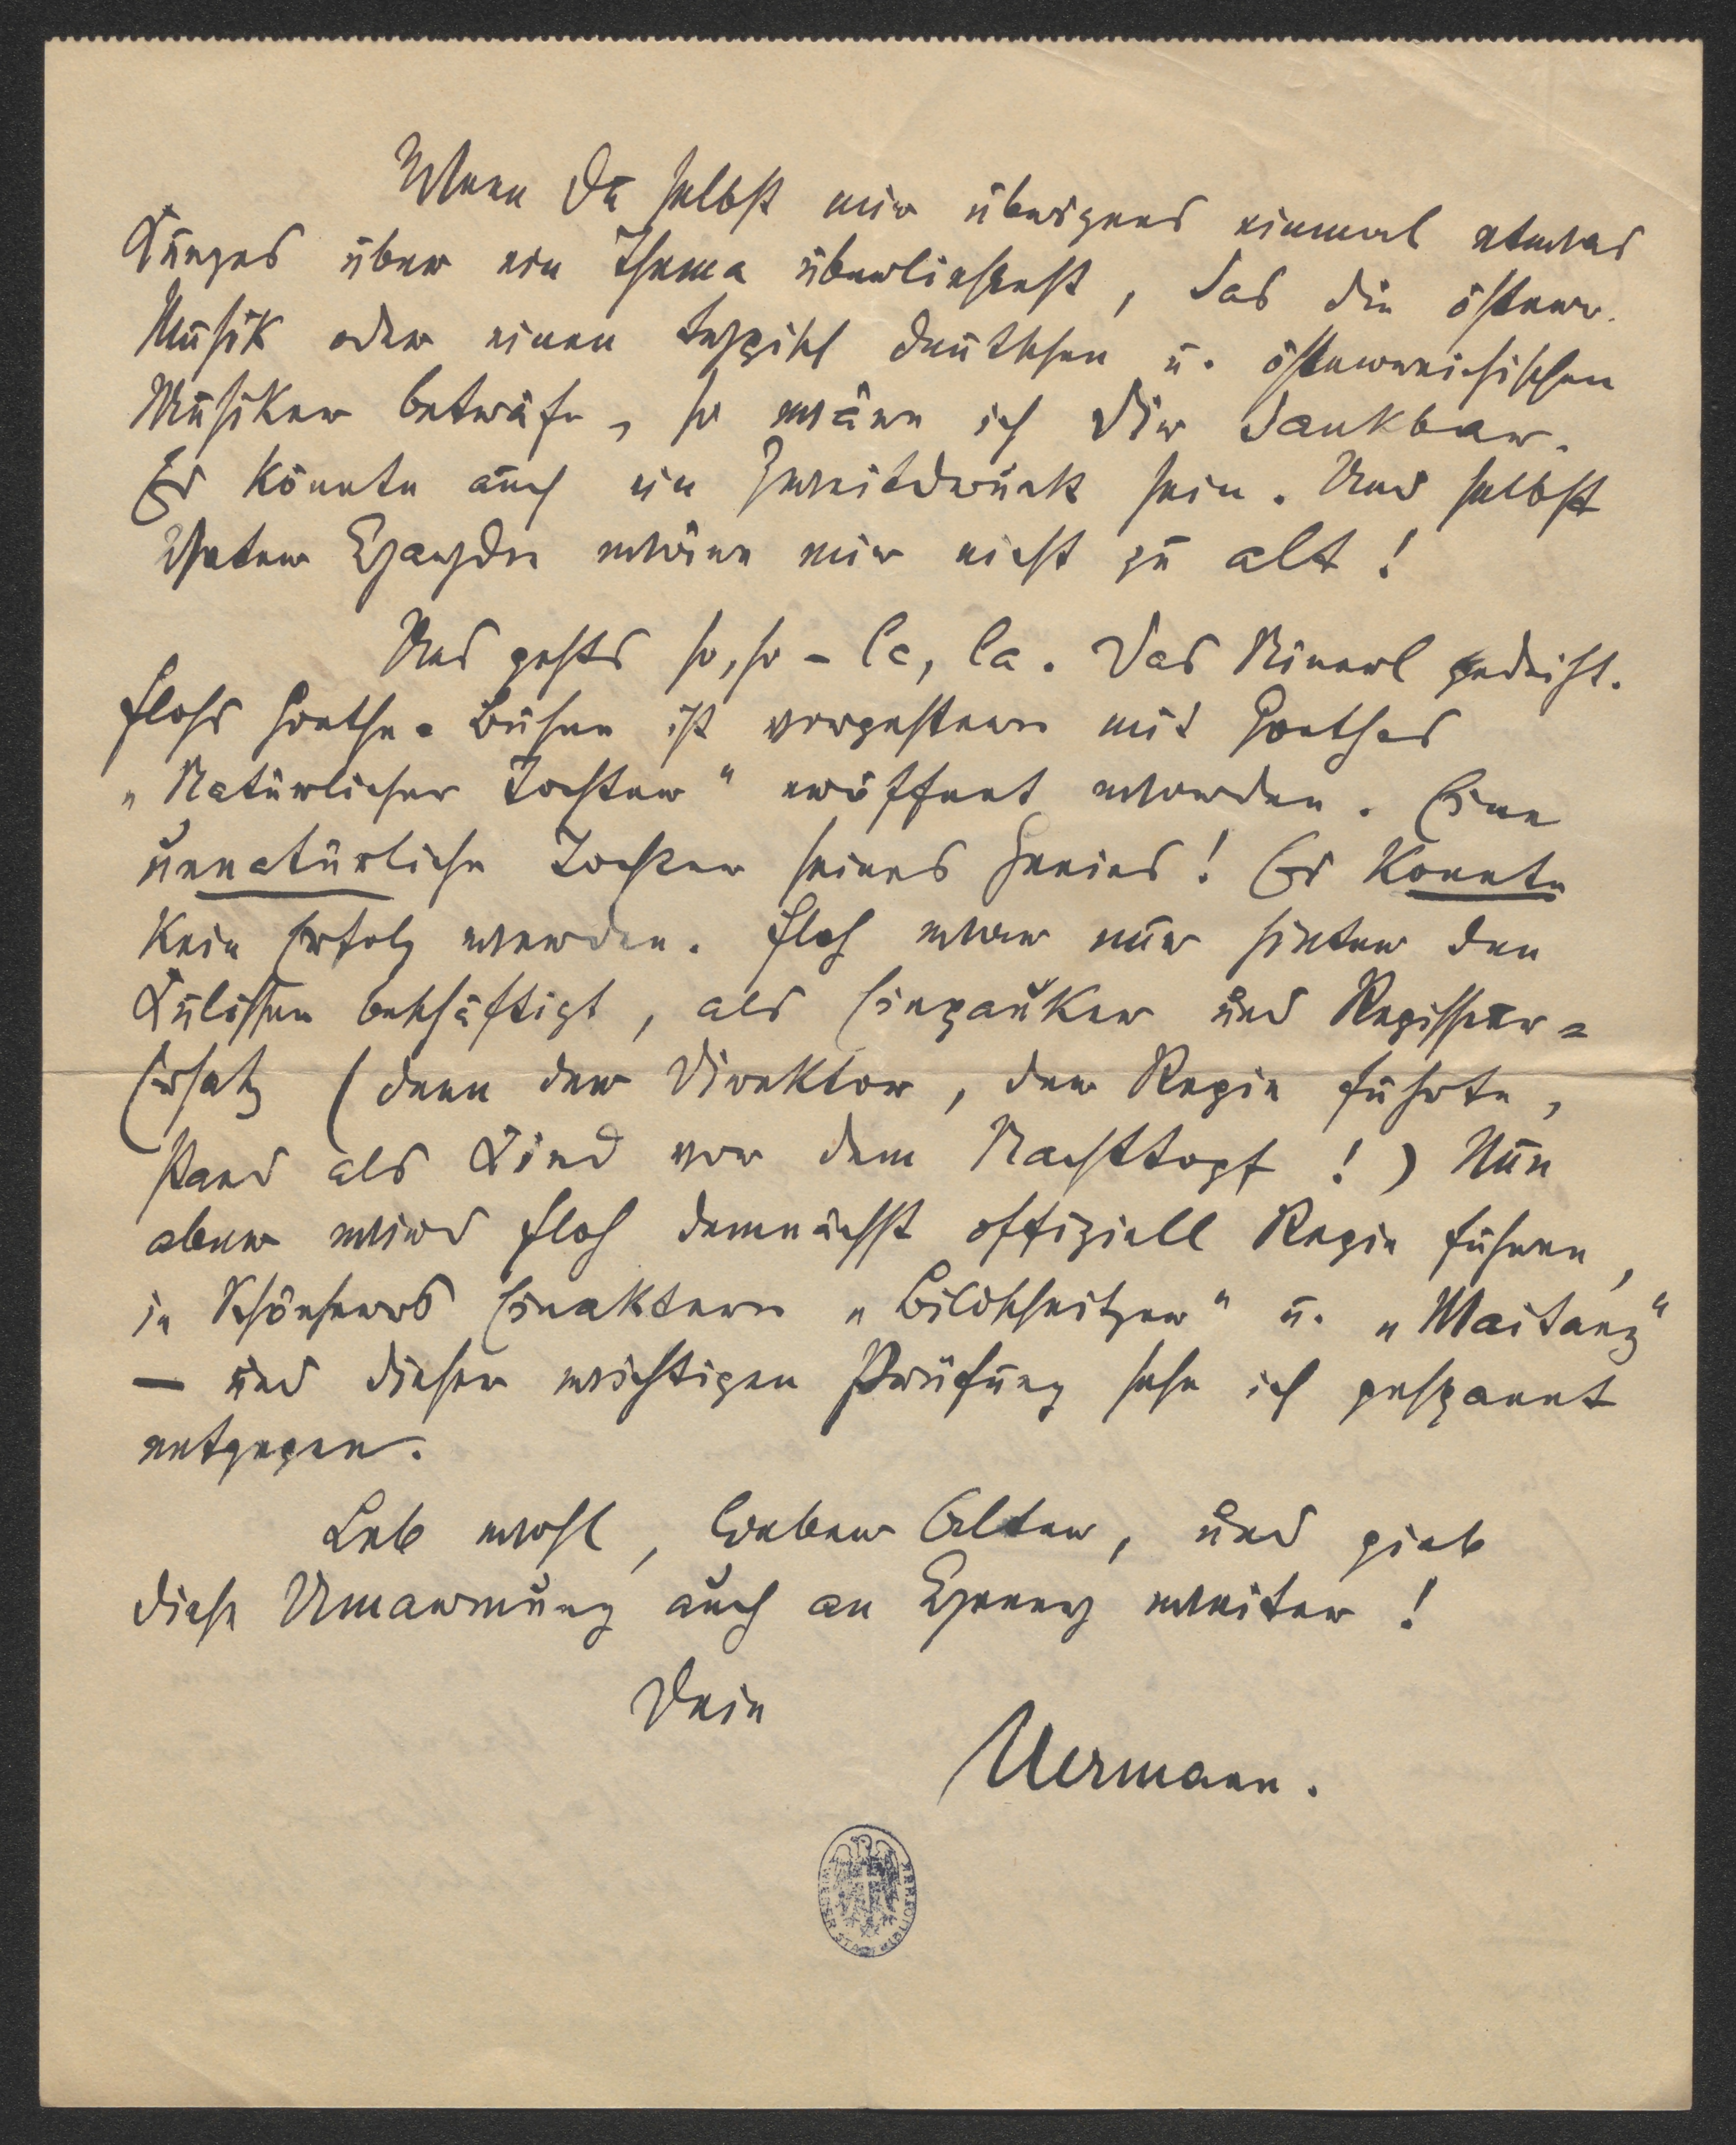 Wenn Du selbst mir übrigens einmal etwas
Kurzes über ein Thema überließest, das die österr.
Musik oder einen speziell deutschen u. österreichischen
Musiker beträfe, so wäre ich Dir dankbar.
Es könnte auch ein Zweitdruck sein. Und selbst
Vater Haydn wäre mir nicht zu alt!
Uns gehts so, so – la, la. Das Rinerl gedeiht.
Flohs Goethe-Bühne ist vorgestern mit Goethes
„Natürlicher Tochter“ eröffnet worden. Eine
unnatürliche Tochter seines Genies! Es konnte
kein Erfolg werden. Floh war nur hinter den
Kulissen beschäftigt, als Einpauker und Regisseur-
Ersatz (denn der Direktor, der Regie führte,
stand als Kind vor dem Nachttopf!) Nun
aber wird Floh demnächst offiziell Regie führen,
in Schönherrs Einaktern „Bildschnitzer“ u. „Maitanz“
– und dieser wichtigen Prüfung sehe ich gespannt
entgegen.
Leb wohl, lieber Alter, und gieb
diese Umarmung auch an Henny weiter!
Dein
Uermann.
WIENER STADT